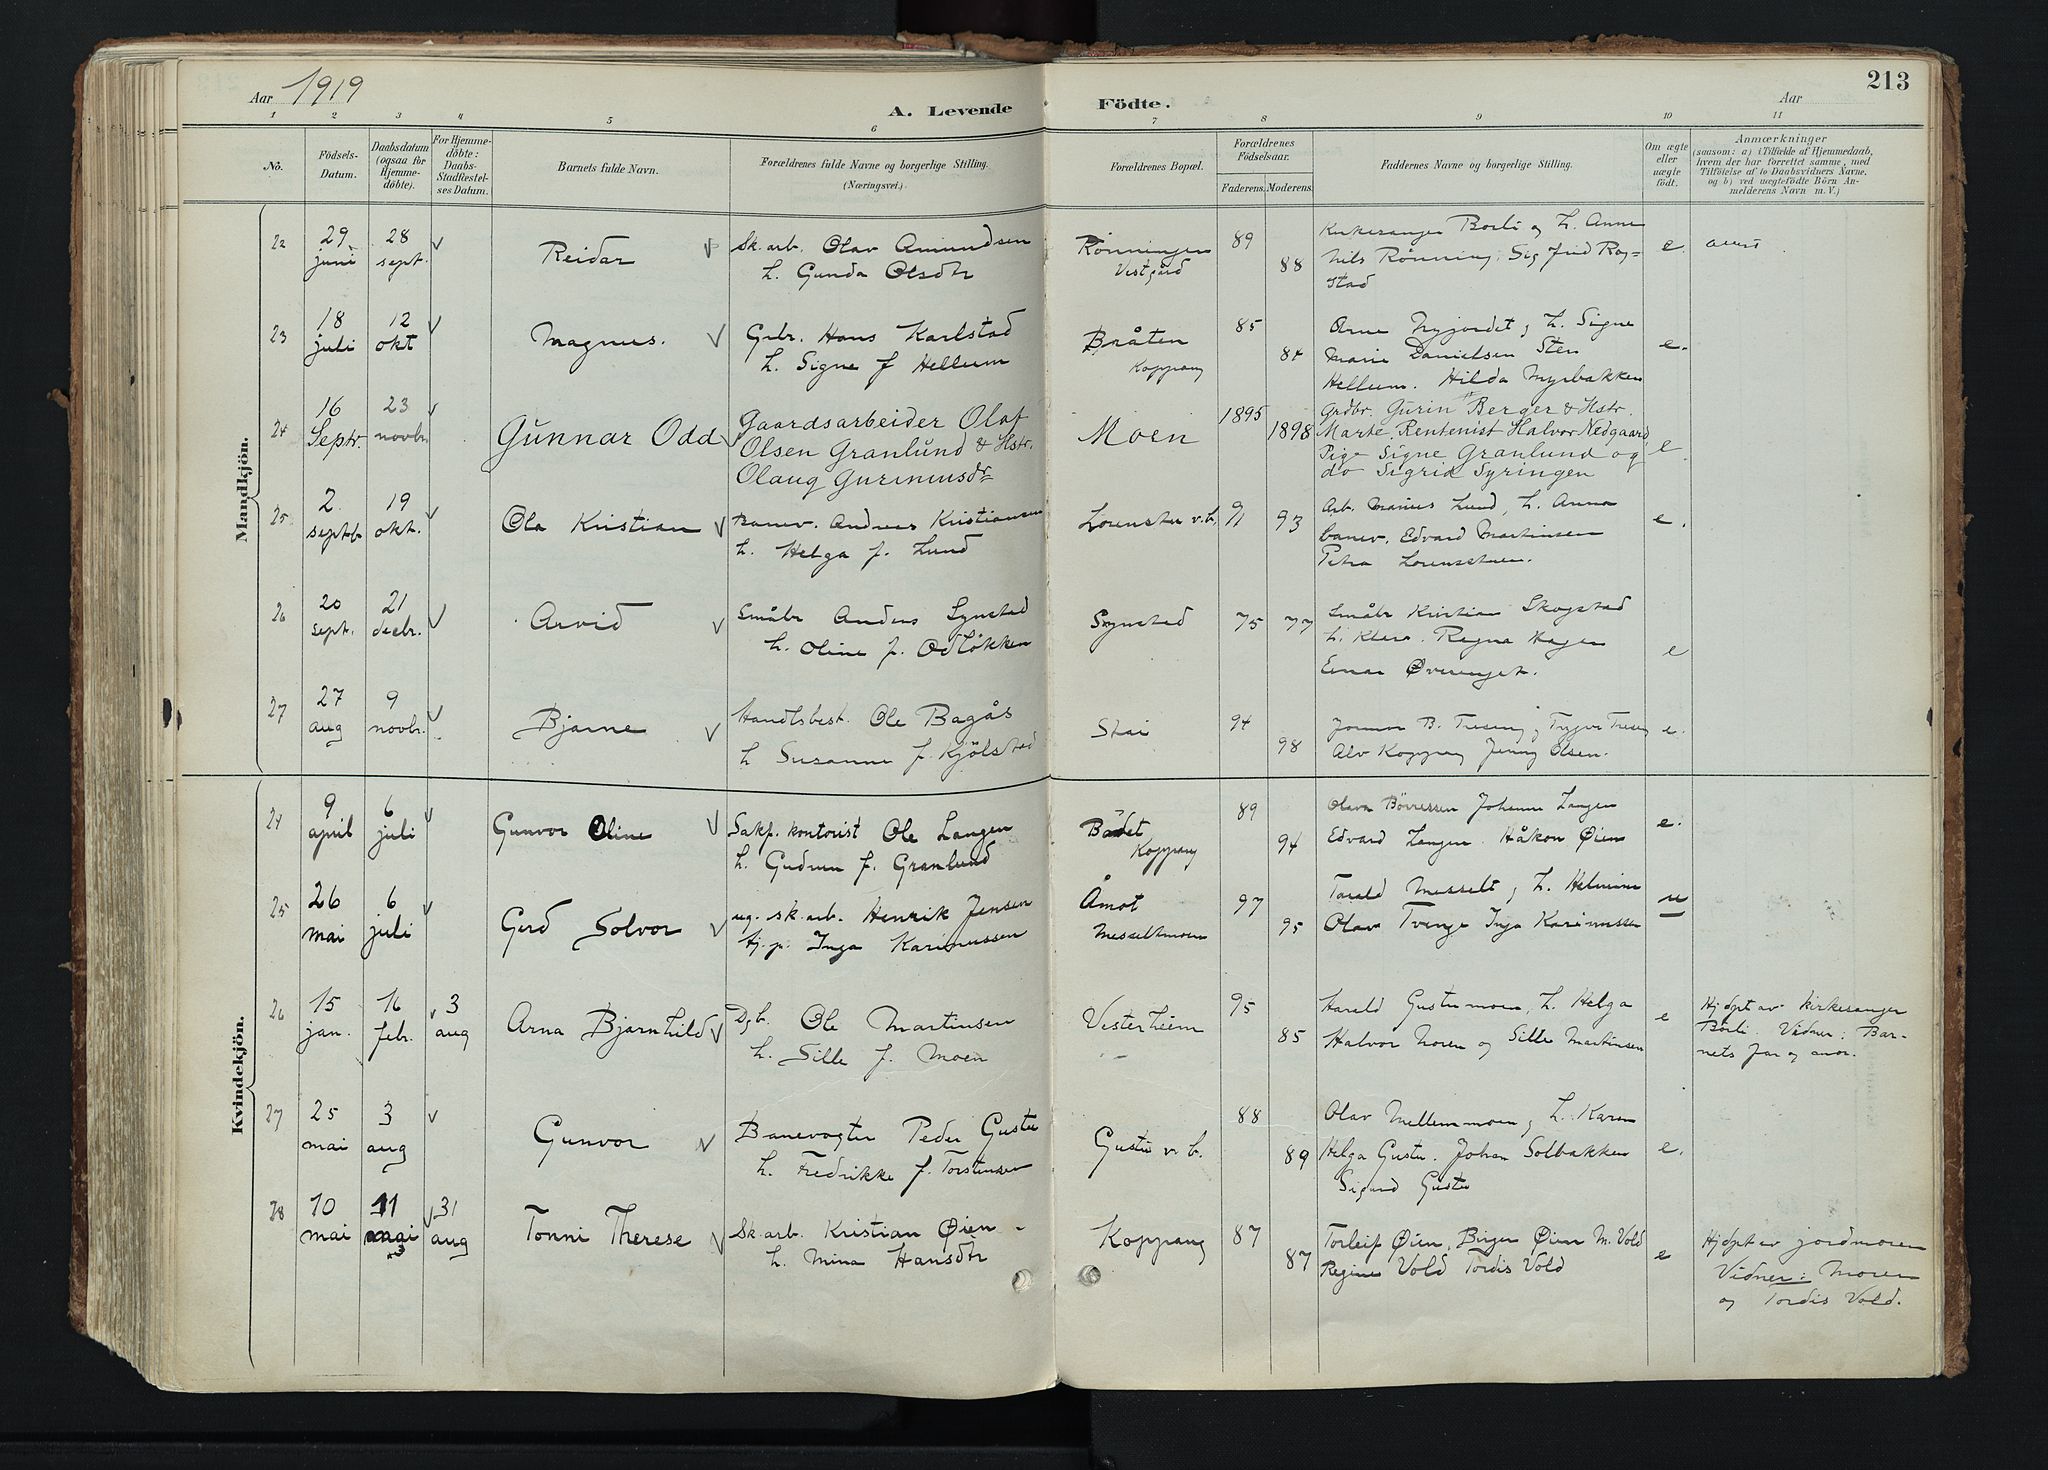 213
Aar 1919
A. Levende Födte.
Aar
1 2 3 4 5 6 7 8 9 10 11
No.
Födsels-Datum.
Daabsdatum (ogsaa for Hjemme-döbte).
For Hjemme-döbte: Daabs-Stadfæstel-ses Datum.
Barnets fulde Navn.
Forældrenes fulde Navne og borgerlige Stilling. (Næringsvei.)
Forældrenes Bopæl.
Forældrenes Födselsaar.
Faderens. Moderens.
Faddernes Navne og borgerlige Stilling.
Om ægte eller uægte födt.
Anmærkninger
(saasom: a) i Tilfælde af Hjemmedaab,
hvem der har forrettet samme, med
Tilföielse af to Daabsvidners Navne,
og b) ved uægtefödte Börn An-
melderens Navn m. V.)
Mandkjön.
22 29 juni 28 sept. Reidar
Sk. arb. Olav Amundsen
h. Gunda Olsdtr
Rønningen Vestgård 89 88
Kirkesanger Borli og h. Anne
Nils Rønning, Sigfrid Rog-
stad
e.
23 18 juli 12 okt Magnus.
Gbr. Hans Karlstad
h. Signe f Hellum
Bråten Koppang 85 84
Arne Nyjordet, h. Signe
Marie Danielsen Sten
Hellum. Hilda Myrbakken
e.
24 16 Septr. 23 novbr. Gunnar Odd
Gaardsarbeider Olaf
Olsen Granlund & Hstr.
Olaug Guriniusdr
Moen 1895 1898
Grdbr. Gurin Berger & Hstr.
Marte, Rentenist Halvor Nedgaard
Pige Signe Granlund og
do Sigrid Syringen
e.
25 2 septb 19 okt. Ola Kristian
Banev. Andreas Kristiansen
h. Helga f. Lund
Lorensten v.b. 91 93
Arb. Marius Lund, h. Anna
banev. Edvard Martinsen
Petra Lorenstuen.
e.
26 20 sept. 21 decbr. Arvid
Småbr Anders Synstad
h. Oline f. Odløkken
Synstad 75 77
Småbr Kristian Skogstad
h. Klara. Regna Hagen
Einar Øvrenget.
e
27 27 aug 9 novbr. Bjarne
Handlsbest. Ole Bagås
h Susanne f. Kjölstad
Stai 94 98
B. Treseng, Trygve Treseng
Alv Koppang Jenny Olsen.
e.
Kvindekjön.
24 9 april 6 juli Gunvor Oline
Sakf. kontorist Ole Langen
h. Gudrun f. Granlund
Badet Koppang 89 94
Olava Børressen Johanne Langen
Edvard Langen. Håkon Øien
e.
25 26 mai 6 juli Gerd Solvor
ug. sk. arb. Henrik Jensen
tj. p. Inga Karinussen
Åmot Messeltmoen 97 95
Torald Messelt, h. Helmine
Olav Tvenge Inga Karinussen
u
26 15 jan. 16 febr. 3 aug Arna Bjarnhild
Dgb. Ole Martinsen
h. Sille f. Moen
Vesterheim 95 85
Harald Gustumoen, h. Helga
Halvor Noren og Sille Martinsen
e
Hjdpt av kirkesanger
Børli. Vidner: Bar-
nets far og mor.
27 25 mai 3 aug Gunvor
Banevogter Peder Gustu
h. Fredrikke f. Torstensen
Gustu v. b. 88 89
Olav Mellemmoen, h. Karen
Helga Gustu. Johan Solbakken
Sigurd Gustu
e.
28 10 mai 11 mai 31 aug Tonni Therese
Sk. arb. Kristian Øien -
h. Mina Hansdtr
Koppang 87 87
Torleif Øien, Birger Øien M. Vold
Regine Vold Tordis Vold
e
Hjdpt av jordmoren
Vidner: Moren
og Tordis Vold.